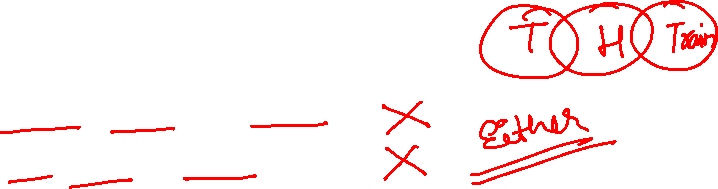 T H Train
Either